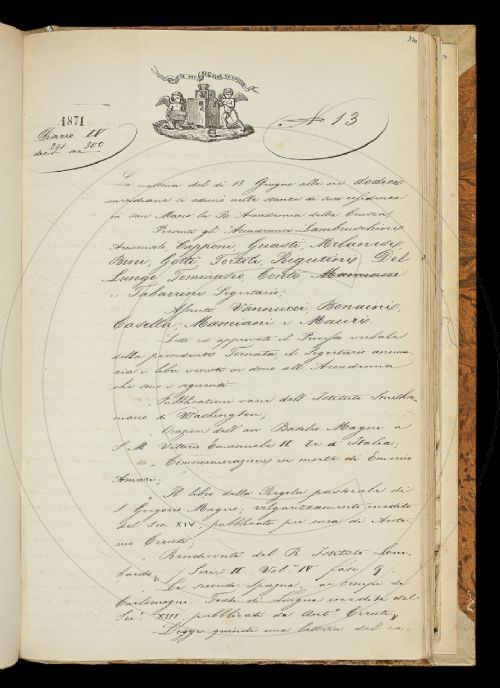 370
1871
Diario IV
291 ac 300
N. 13
La mattina del dì 13 Giugno alle ore dodici
meridiane si adunò nelle stanze di sua residenza
in San Marco la R. Accademia della Crusca,
Presenti gli Accademici Lambruschini
Arciconsolo Capponi, Guasti, Milanesi,
Bini, Gotti, Tortoli, Rigutini, Del
Lungo, Tommasèo, Conti, Mamiani
e Tabarrini Segretario;
Assenti Vannucci, Bonaini,
Casella, Mamiani e Mauri.
Letto ed approvato il Processo verbale
della precedente Tornata, il Segretario annun-
zia i libri venuti in dono all'Accademia
che sono i seguenti
Pubblicazioni varie dell'Istituto Smitho-
niano di Washington;
Orazione dell'avv. Basilio Magni a
S. M. Vittorio Emanuele II Re d'Italia;
Commemorazione in morte di Emerico
Amari;
Il libro della Regola pastorale di
S. Gregorio Magno, volgarizzamento inedito
del sec. XIV, pubblicato per cura di Anto-
nio Ceruti;
Rendiconti del R. Istituto Lom-
bardo, Serie II Vol. IV fasc. 9.
La seconda Spagna, ai tempi di
Carlomagno Testi di Lingua inediti del
Sec. XIII pubblicati da Ant. Ceruti,
Legge quindi una lettera del ca-